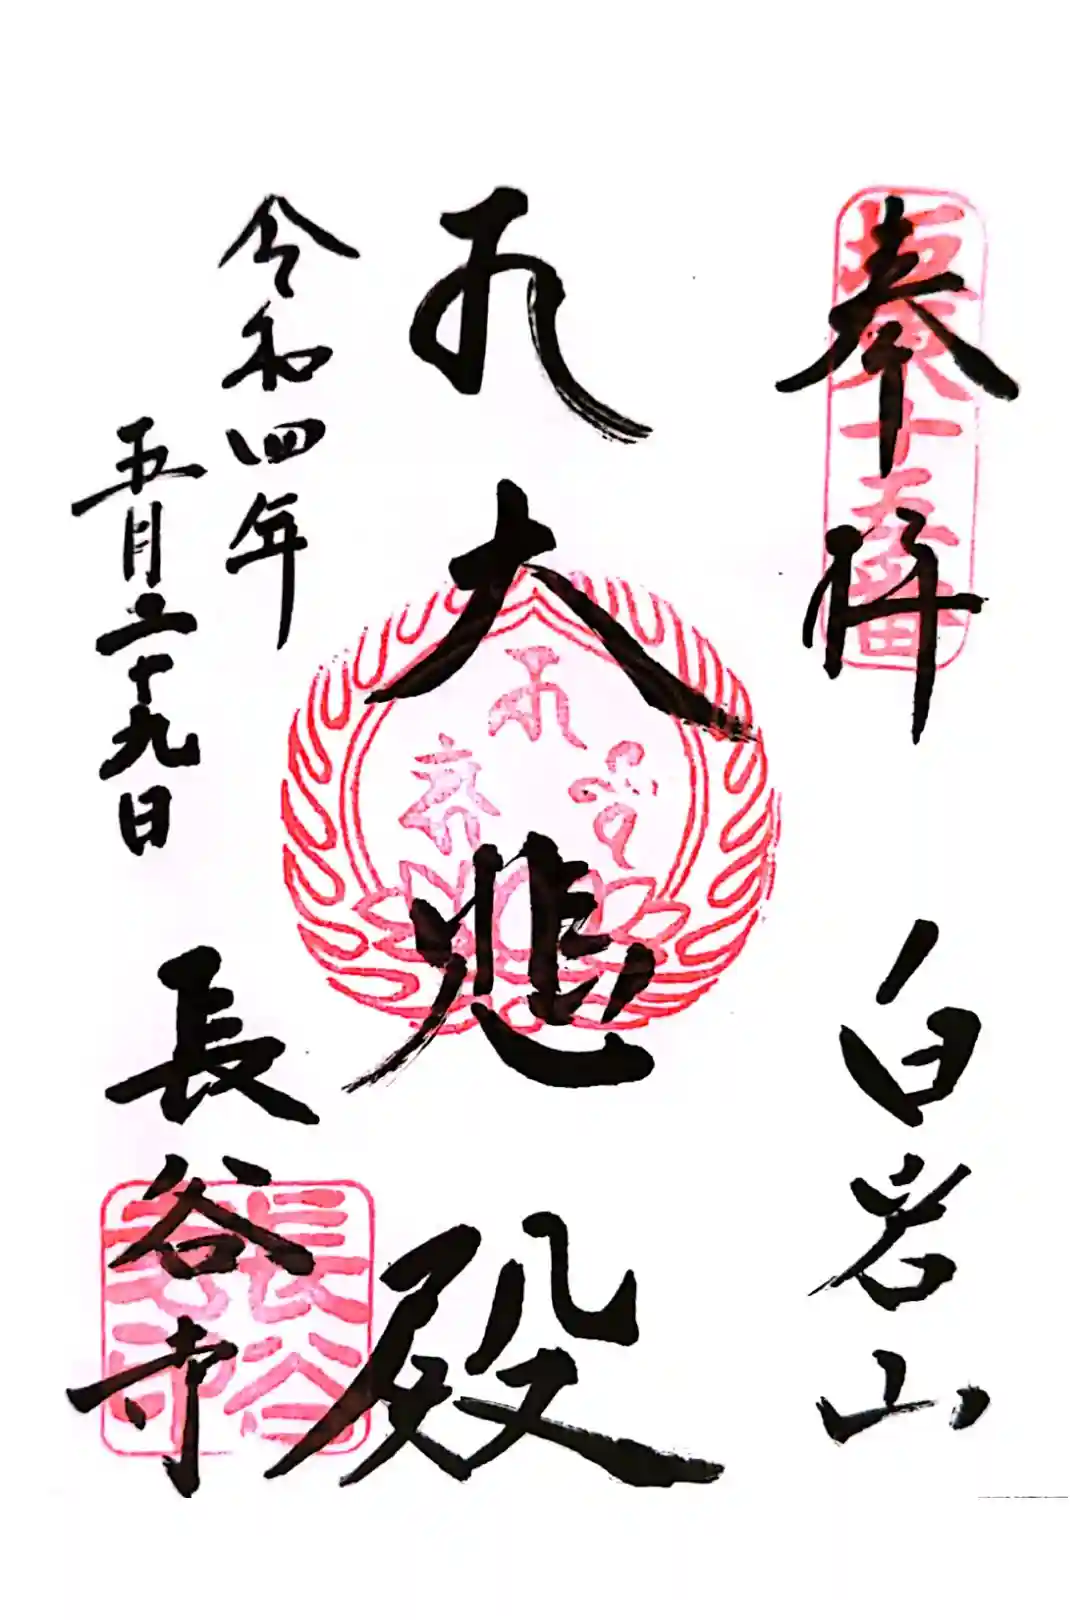 奉拝
坂東十五番
白岩山
大悲殿
令和四年
五月二十九日
長谷寺